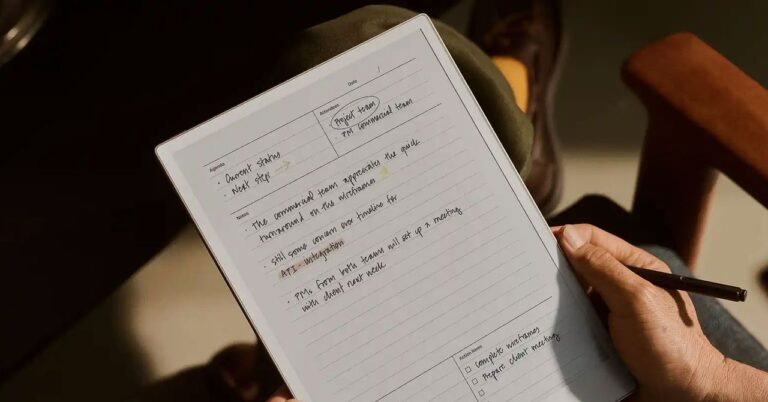 Date
Agenda
• Current status
• Next steps →
Attendees
Project team
PM Commercial team
Notes
• The commercial team appreciates the quick
turnaround on the wireframes
• still some concern over timeline for
API - integration
• PMs from both teams will set up a meeting
with client next week
Action Items
complete wireframes
Prepare client meeting